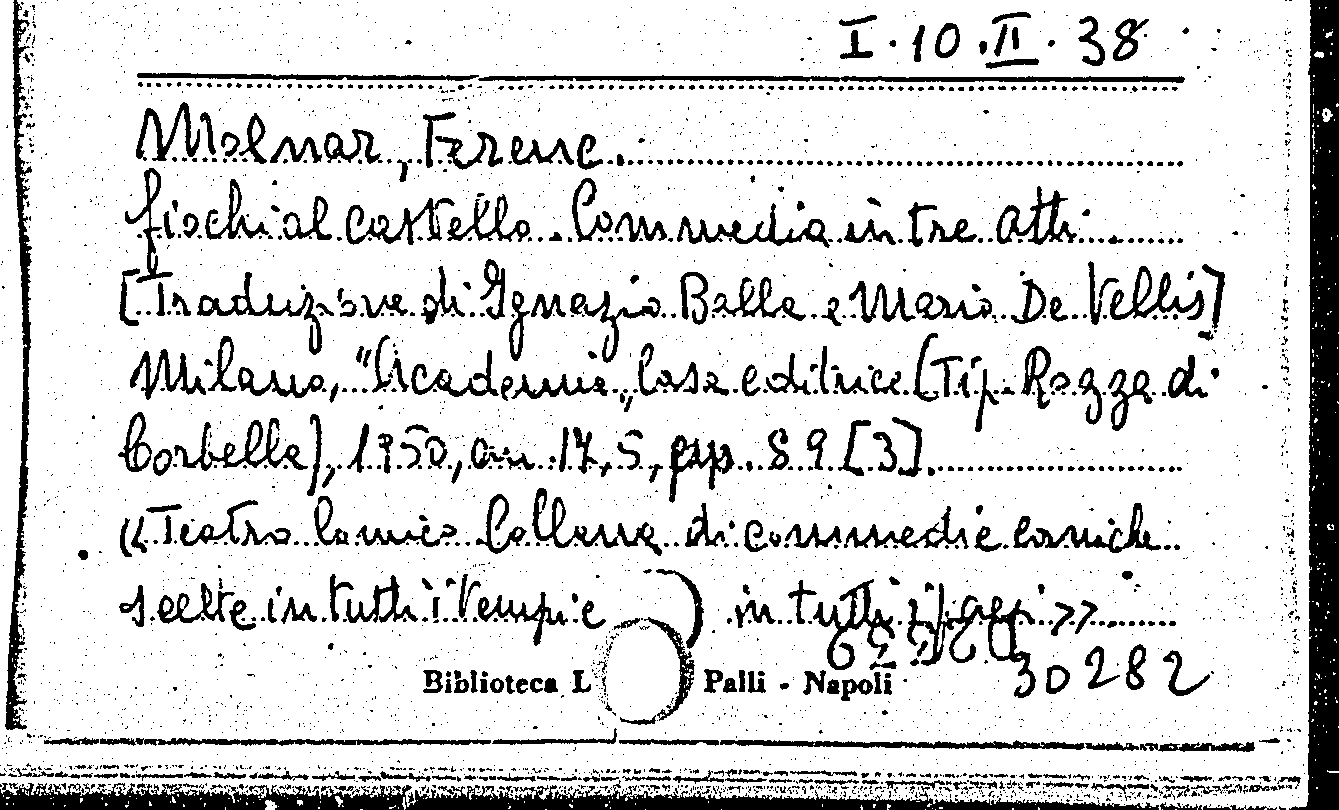 I. 10. II. 38
Molnar, Ferenc.
fischi al castello. Commedia in tre atti
[Traduzione di Ignazio Balla e Mario De Vellis]
Milano, "Academia" Casa editrice (Tip. Rozza di
Corbella), 1950, cm. 17,5, pp. 89 [3].
«Teatro Comico Collana di commedie comiche
scelte in tutti i tempi e in tutti i paesi»
30282
Biblioteca L Palli - Napoli